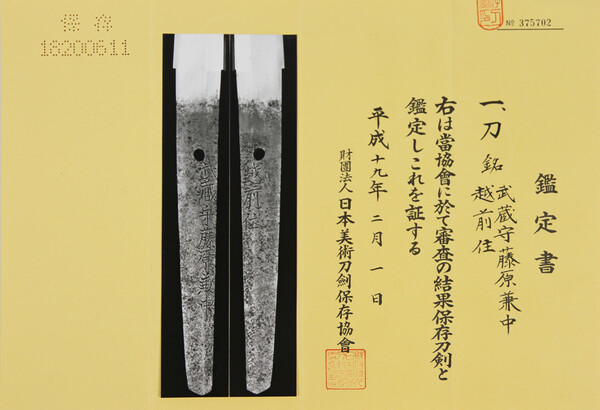 鑑定書
一、刀 銘 武蔵守藤原兼中
越前住
右は當協會に於て審査の結果保存刀剣と
鑑定しこれを証する
平成十九年二月一日
財團法人日本美術刀劍保存協會
№ 375702
保存
18200611
武蔵守藤原兼中
越前住